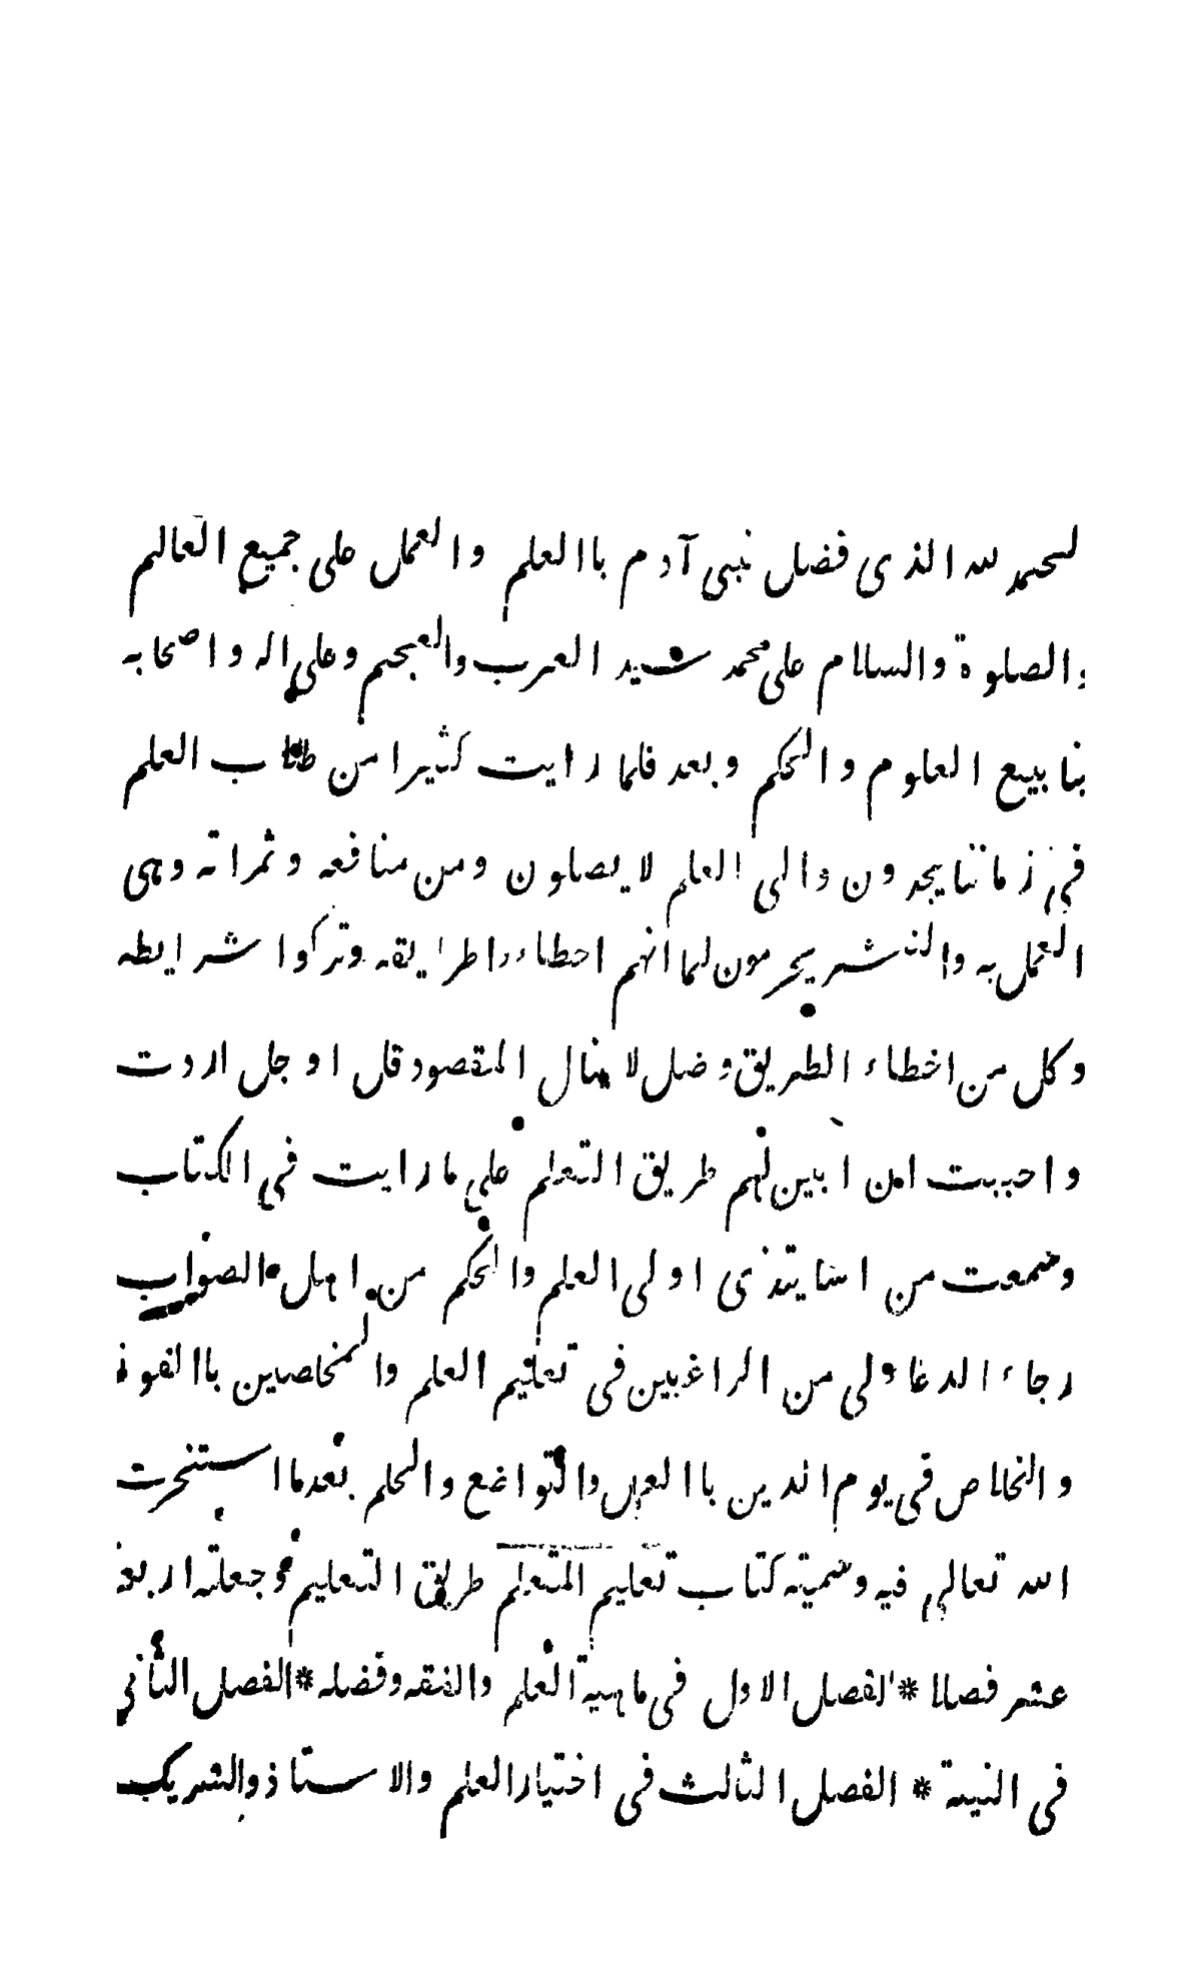 لحمد لله الذى فضل نبى آدم باالعلم والعمل على جميع العالم
والصلوة والسلام على محمد شيد العرب والعجم وعلى اله واصحابه
ينابيع العلوم والحكم وبعد فلما رايت كثيرا من طلاب العلم
فى زماننا يجدون والى العلم لا يصلون ومن منافعه وثمراته وهى
العمل به والنشر يحرمون لما انهم اخطاءوا طرايقه وتركوا شرايطه
وكل من اخطاء الطريق وضل لا ينال المقصود قل او جل اردت
واحببت ان ابين لهم طريق التعلم على ما رايت فى الكتاب
وشمعت من اشايتذى اولى العلم والحكم من اهل الصواب
رجاء الدعا ولى من الراغبين فى تعليم العلم والمخلصين باالفوز
والخلاص فى يوم الدين باالعمل والتواضع والحلم بعدما استخرت
الله تعالى فيه وشميته كتاب تعليم المتعلم طريق التعليم وجعلته اربعة
عشر فصلا * الفصل الاول فى ماهية العلم والفقه وفضله * الفصل الثانى
فى النية * الفصل الثالث فى اختيار العلم والاستاذ والشريك